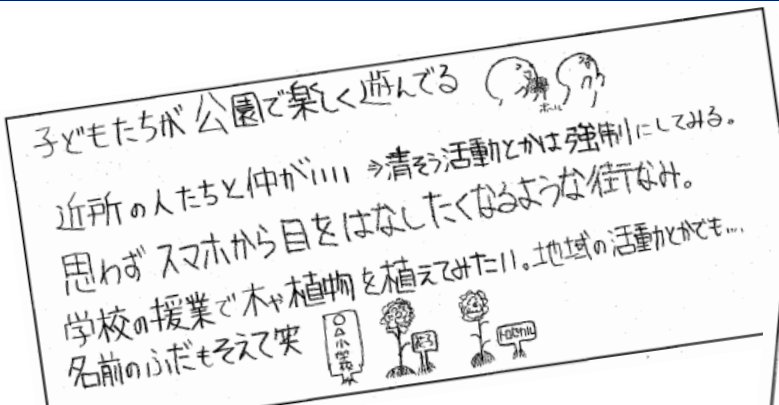 子どもたちが公園で楽しく遊んでる
ボール
近所の人たちと仲がいい ⇒清そう活動とかは強制にしてみる。
思わずスマホから目をはなしたくなるような街なみ。
学校の授業で木や植物を植えてみたい。地域の活動とかでも…
名前のふだもそえて笑
〇△小学校